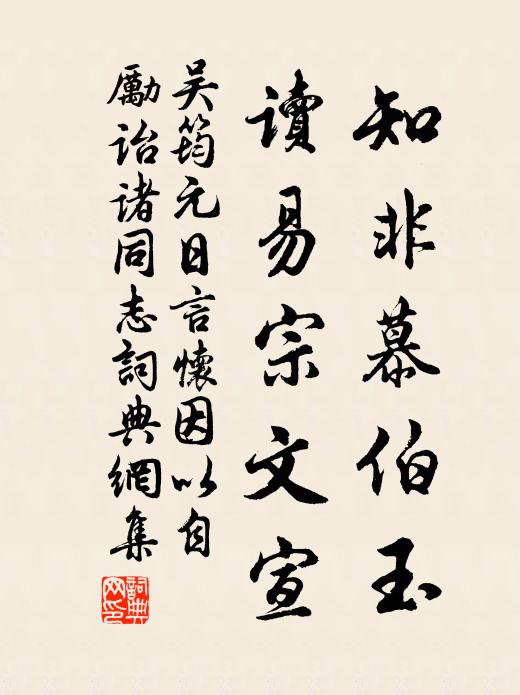 知非慕伯玉
讀易宗文宣
吴筠元日言懷因以自
勵詒諸同志詞典網集
詞典網印